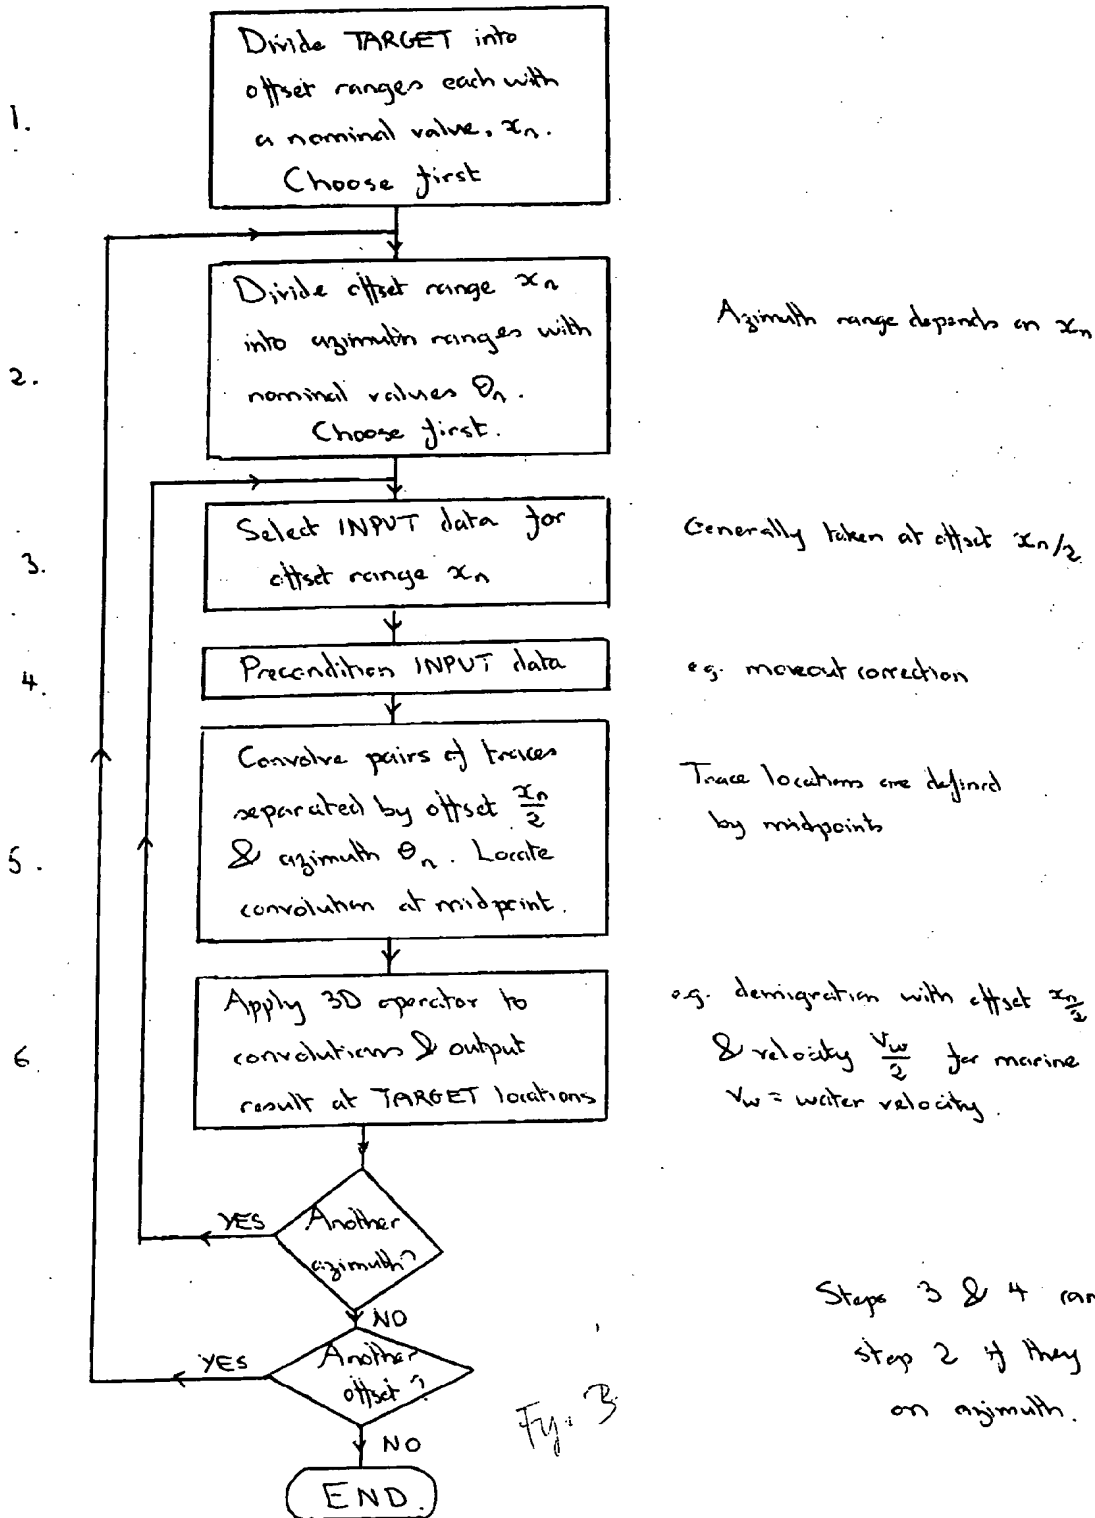 1.
Divide TARGET into
offset ranges each with
a nominal value, xₙ.
Choose first
2.
Divide offset range xₙ
into azimuth ranges with
nominal values θₙ.
Choose first.
Azimuth range depends on xₙ
3.
Select INPUT data for
offset range xₙ
Generally taken at offset xₙ/2
4.
Precondition INPUT data
e.g. moveout correction
5.
Convolve pairs of traces
separated by offset xₙ/2
& azimuth θₙ. Locate
convolution at midpoint.
Trace locations are defined
by midpoints
6
Apply 3D operator to
convolutions & output
result at TARGET locations
e.g. demigration with offset xₙ/2
& velocity Vw/2 for marine
Vw = water velocity.
YES
Another
azimuth?
NO
YES
Another
offset?
NO
END.
Steps 3 & 4
step 2 if they
on azimuth.
Fig. 3